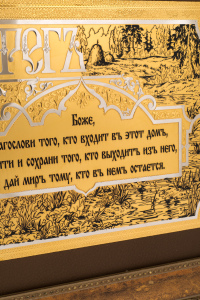 Боже,
благослови того, кто входитъ въ этотъ домъ,
и сохрани того, кто выходитъ изъ него,
дай миръ тому, кто въ немъ остается.